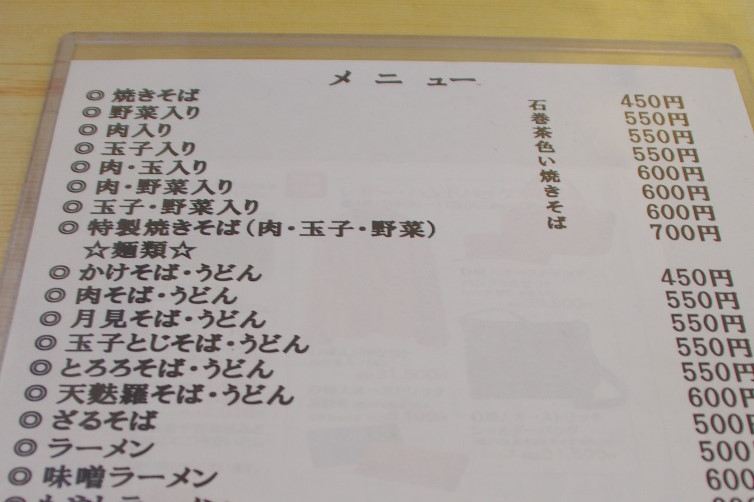 メニュー
◎ 焼きそば 450円
◎ 野菜入り 550円
◎ 肉入り 550円
◎ 玉子入り 550円
◎ 肉・玉入り 600円
◎ 肉・野菜入り 600円
◎ 玉子・野菜入り 600円
◎ 特製焼きそば(肉・玉子・野菜) 700円
石巻茶色い焼きそば
☆麺類☆
◎ かけそば・うどん 450円
◎ 肉そば・うどん 550円
◎ 月見そば・うどん 550円
◎ 玉子とじそば・うどん 550円
◎ とろろそば・うどん 550円
◎ 天麩羅そば・うどん 600円
◎ ざるそば 500円
◎ ラーメン 500
◎ 味噌ラーメン 600